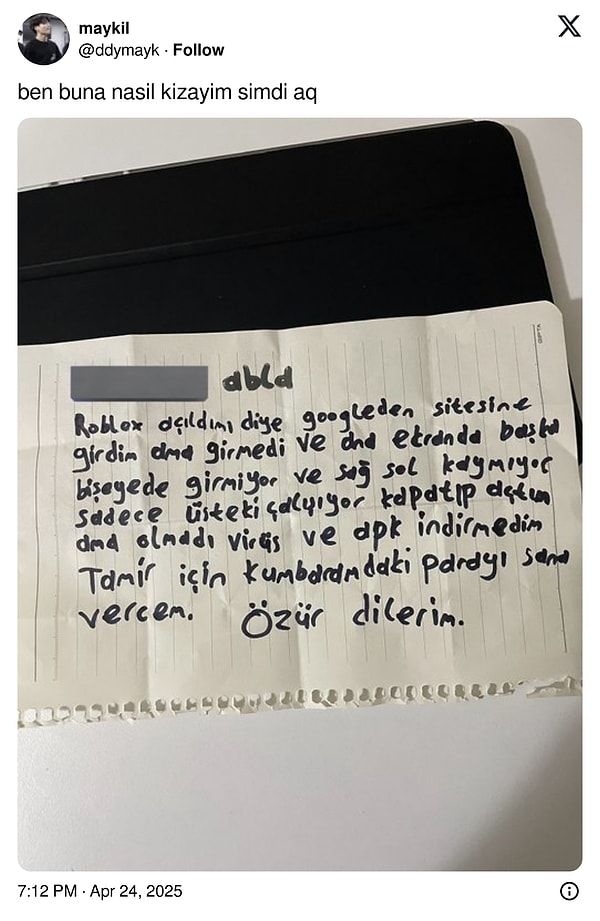 maykil
@ddymayk · Follow
ben buna nasil kizayim simdi aq
abla
Roblox açıldımı diye googleden sitesine
girdim ama girmedi ve ana ekranda başka
bişeyede girmiyor ve sağ sol kaymıyor
sadece üsteki çalışıyor kapatıp açtım
ama olmadı virüs ve apk indirmedim
Tamir için kumbaramdaki parayı sana
vercem. Özür dilerim.
7:12 PM · Apr 24, 2025